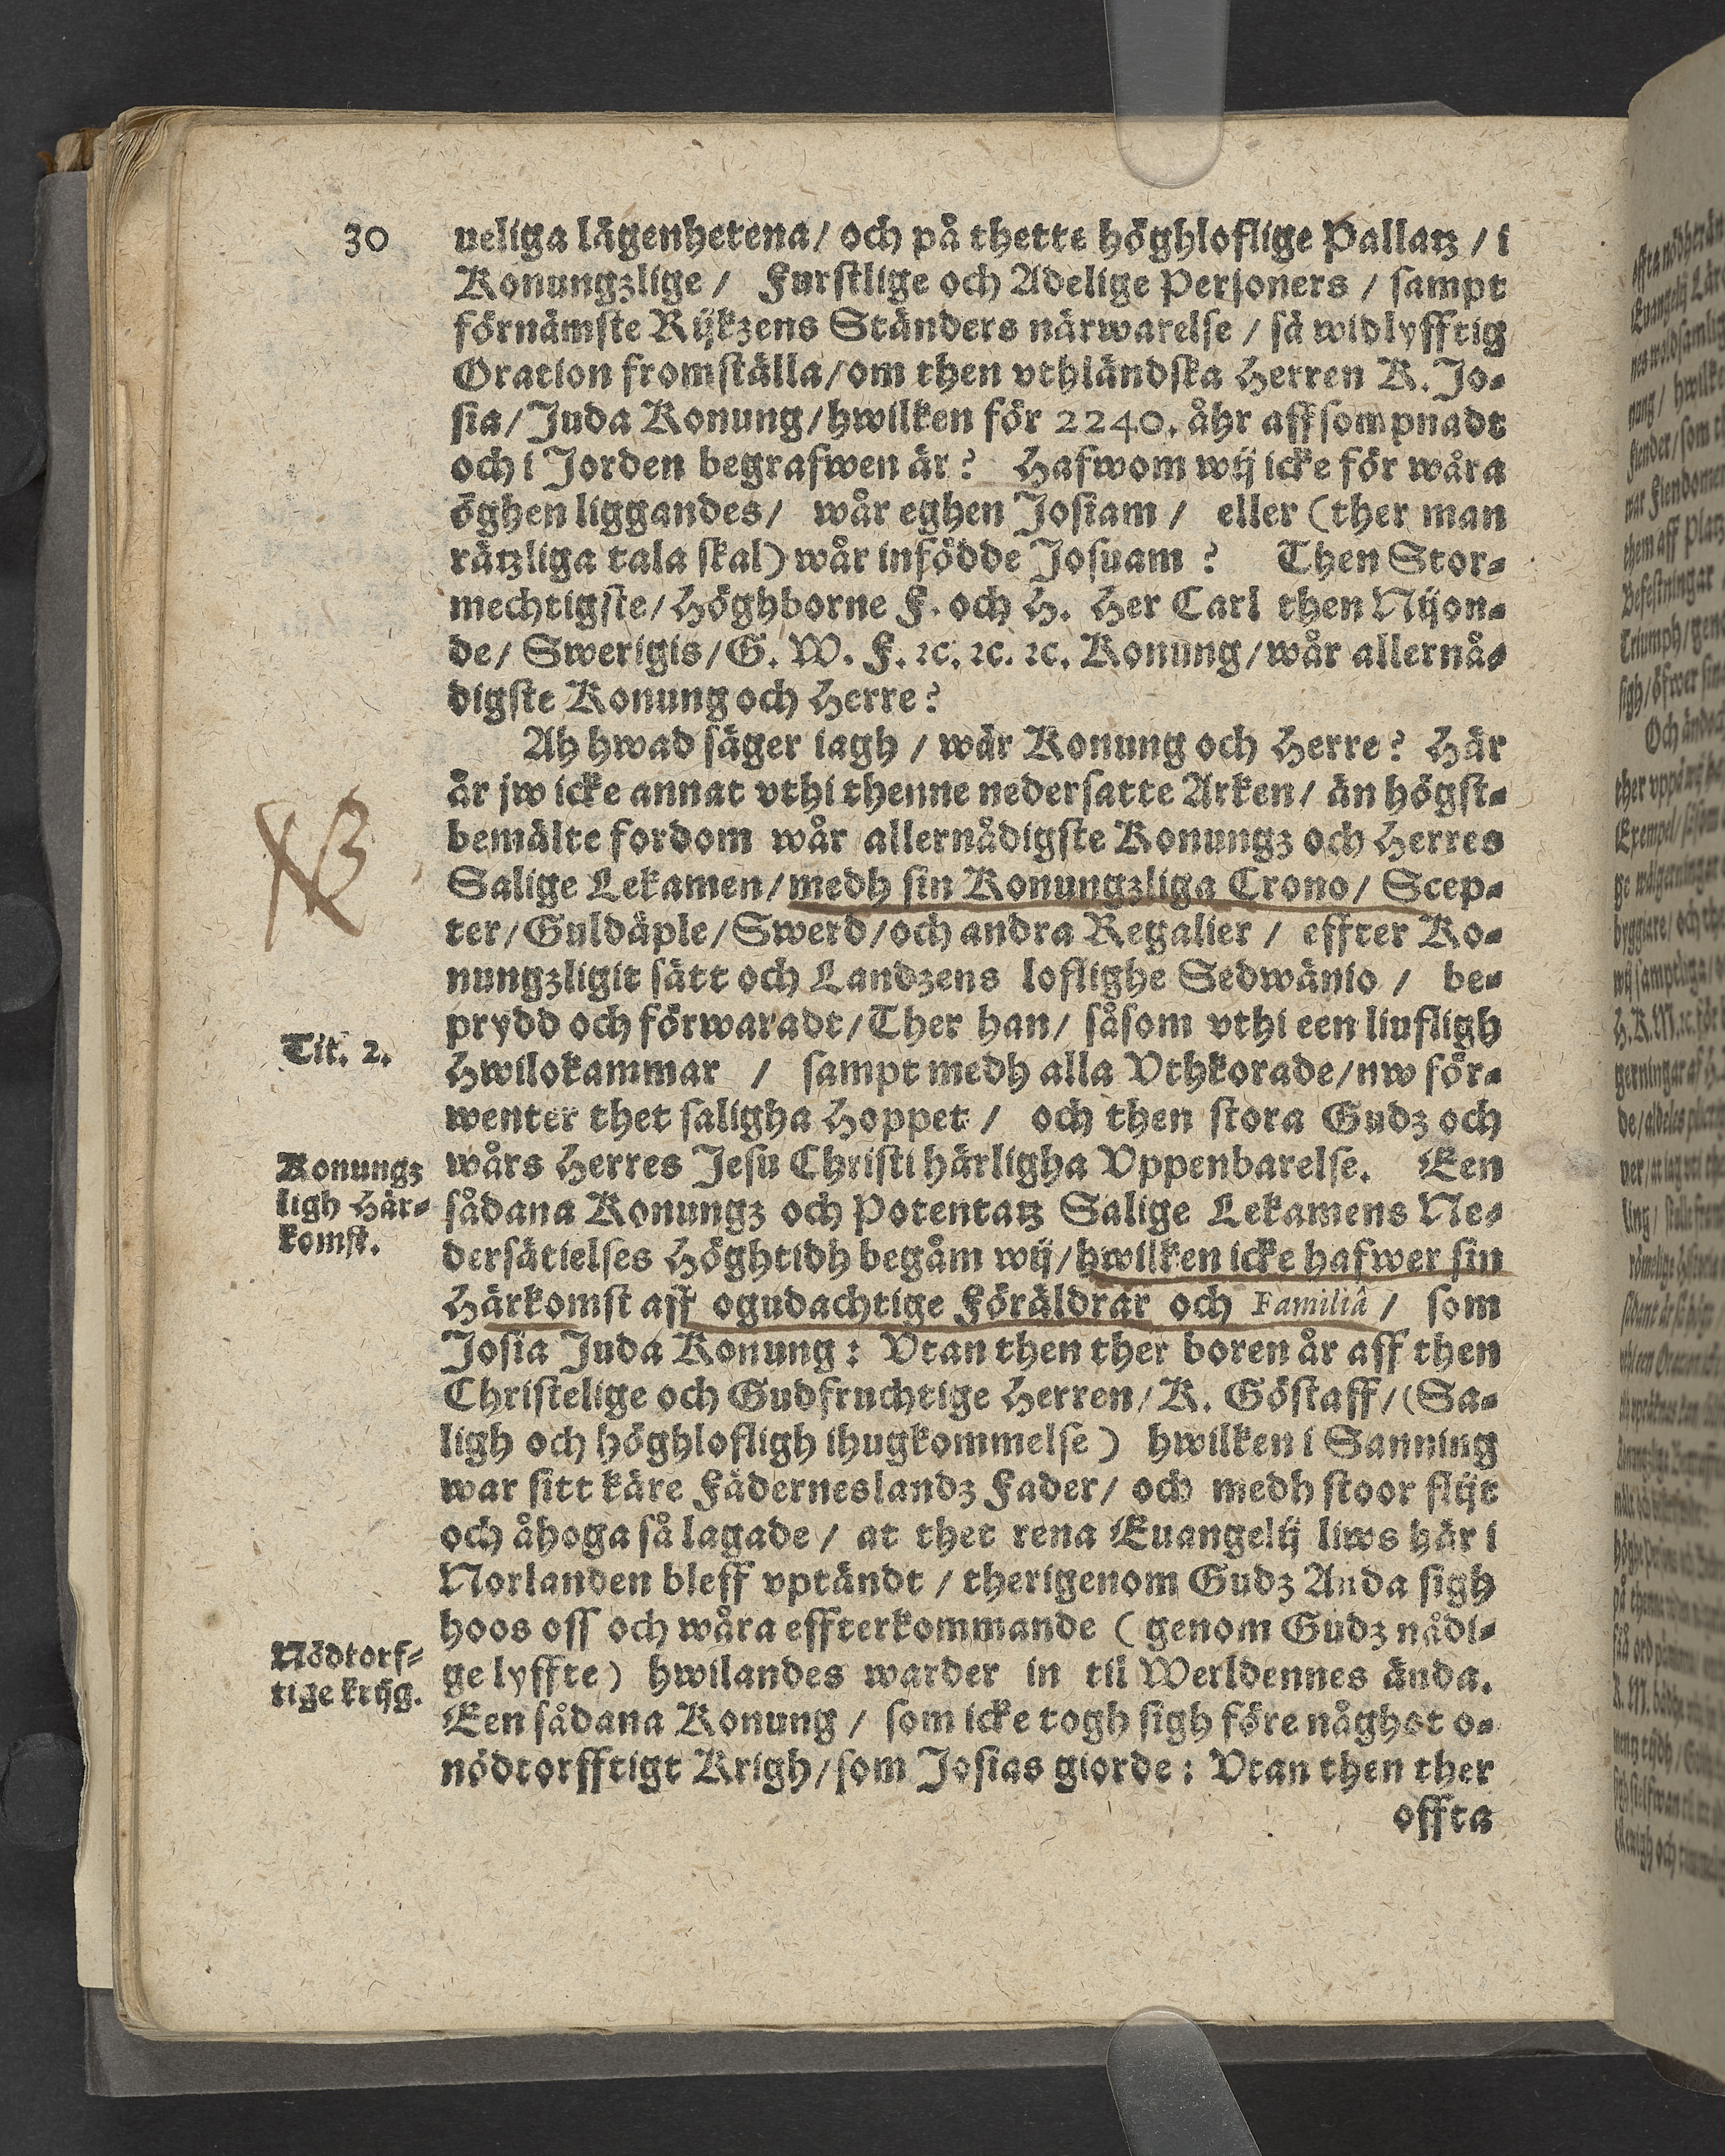 30
ueliga lägenhetena / och på thette höghloflige Pallatz / i
Konungzlige / Furstlige och Adelige Personers / sampt
förnämste Rijkzens Ständers närwarelse / så widlyfftig
Oration fromställa / om then vthländska Herren K. Jo-
sia / Juda Konung / hwilken för 2240. åhr affsompnadt
och i Jorden begrafwen är? Hafwom wij icke för wåra
öghen liggandes / wår eghen Josiam / eller (ther man
rätzliga tala skal) wår infödde Josuam? Then Stor-
mechtigste / Höghborne F. och H. Her Carl then Nijon-
de / Swerigis / G. W. F. ꝛc. ꝛc. ꝛc. Konung / wår allernå-
digste Konung och Herre?
Ah hwad säger iagh / wår Konung och Herre? Här
år jw icke annat vthi thenne nedersatte Arken / än högst-
bemälte fordom wår allernådigste Konungz och Herres
Salige Lekamen / medh sin Konungzliga Crono / Scep-
ter / Guldäple / Swerd / och andra Regalier / effter Ko-
nungzligit sätt och Landzens loflighe Sedwänio / be-
prydd och förwaradt / Ther han / såsom vthi een liufligh
Tit. 2.
Hwilokammar / sampt medh alla Vthkorade / nw för-
wenter thet saligha Hoppet / och then stora Gudz och
wårs Herres Jesu Christi härligha Vppenbarelse. Een
Konungz
ligh Här-
komst.
sådana Konungz och Potentatz Salige Lekamens Ne-
dersätielses Höghtidh begåm wij / hwilken icke hafwer sin
Härkomst aff ogudachtige Föräldrar och Familiâ / som
Josia Juda Konung: Vtan then ther boren år aff then
Christelige och Gudfruchtige Herren / K. Göstaff / (Sa-
ligh och höghlofligh ihugkommelse) hwilken i Sanning
war sitt käre Fäderneslandz Fader / och medh stoor flijt
och åhoga så lagade / at thet rena Euangelij liws här i
Norlanden bleff vptändt / therigenom Gudz Anda sigh
hoos oss och wåra effterkommande (genom Gudz nådi-
Nödtorf-
tige krijg.
ge lyffte) hwilandes warder in til Werldennes ända.
Een sådana Konung / som icke togh sigh före någhot o-
nödtorfftigt Krigh / som Josias giorde: Vtan then ther
offta